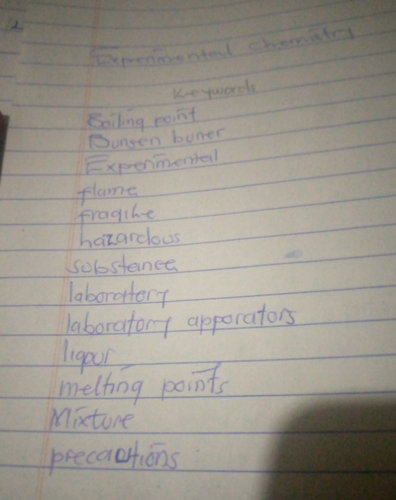 Experimental chemistry
Keywords
Boiling point
Bunsen buner
Experimental
flame
fragile
hazardous
substance
laboratory
laboratory apporators
liqour
melting points
Mixture
precautions